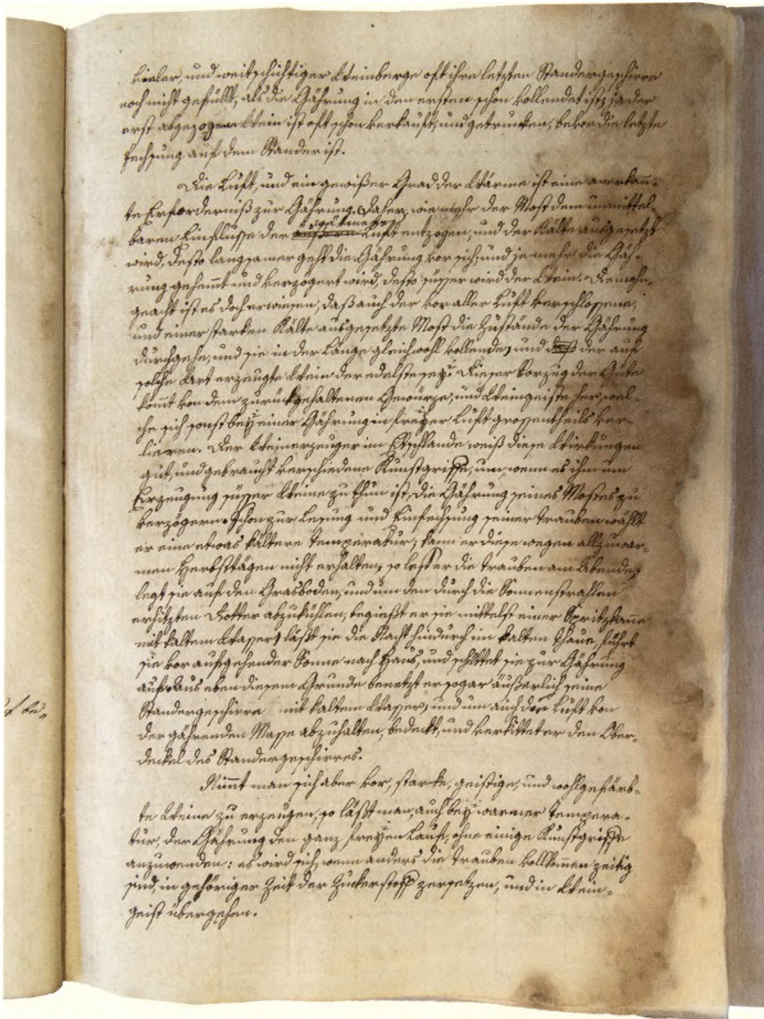 vieler, und weitschichtiger Weinberge oft ihre letzten Standergeschirre
noch nicht gefüllt, als die Gährung in den ersten schon vollendet ist; ja der
erst abgezogene Wein ist oft schon verkauft, und getrunken, bevor die letzte
Fechsung auf dem Stander ist.
Die Luft, und ein gewißer Grad der Wärme ist eine anerkann-
te Erforderniß zur Gährung. Daher, wie mehr der Most dem unmittel-
baren Einfluße der Luft entzogen, und der Kälte ausgesetzt
wird, desto langsamer geht die Gährung vor sich, und je mehr die Gäh-
rung gehemmt und verzögert wird, desto süsser wird der Wein. Demohn-
geacht ist es doch erwiesen, daß auch der vor aller Luft verschlossene,
und einer starken Kälte ausgesetzte Most die Zustände der Gährung
durchgehe, und sie in der Länge gleichwohl vollende; und der auf
solche Art erzeugte Wein der edelste sey. Dieser Vorzug der Güte
kömt von dem zurückgehaltenen Gewürze, und Weingeiste her, wel-
che sich sonst bey einer Gährung in freyer Luft grossentheils ver-
lieren. Der Weinerzeuger im Etschlande weiß diese Wirkungen
gut, und gebraucht verschiedene Kunstgriffe, um, wenn es ihm um
Erzeugung süsser Weine zu thun ist, die Gährung seines Mostes zu
verzögern. Schon zur Lesung und Einfechsung seiner Trauben wählt
er eine etwas kältere Temperatur; kann er diese wegen allzuwar-
men Herbsttägen nicht erhalten, so läßt er die Trauben am Abende,
legt sie auf den Grasboden, und um den durch die Sonnenstrahlen
erhitzten Dotter abzukühlen, begießt er sie mittelst einer Spritzkanne
mit kaltem Wasser, läßt sie die Nacht hindurch im kalten Thaue, führt
sie vor aufgehender Sonne nach Haus, und schüttet sie zur Gährung
auf. Aus eben diesem Grunde benetzt er sogar äußerlich seine
Standergeschirre mit kaltem Wasser, und um auch die Luft von
der gährenden Masse abzuhalten, bedeckt, und verkittet er den Ober-
deckel des Standergeschirres.
Nimmt man sich aber vor, starke, geistige, und wohlgefärb-
te Weine zu erzeugen, so läßt man, auch bey warmer Tempera-
tur, der Gährung den ganz freyen Lauf, ohne einige Kunstgriffe
anzuwenden: es wird sich, wenn anders die Trauben vollkommen zeitig
sind, in gehöriger Zeit der Zuckerstoff zersetzen, und in Wein-
geist übergehen.